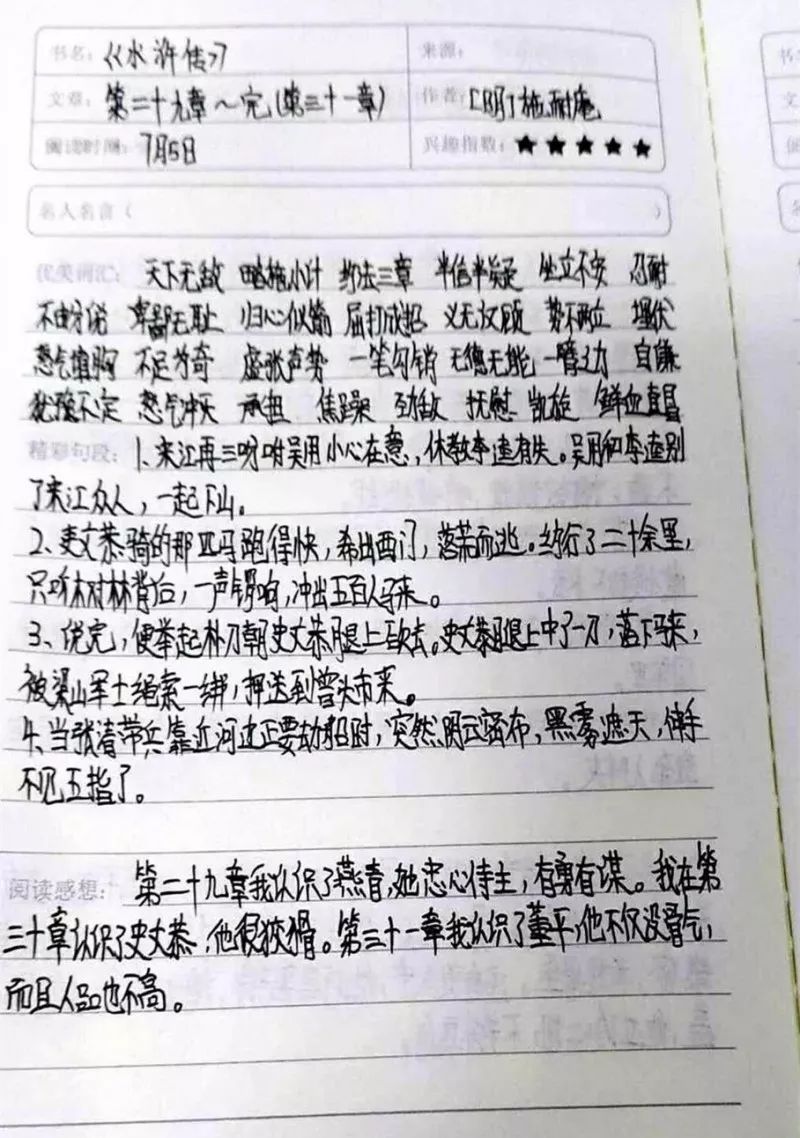 书名：《水浒传》 来源：
文章：第二十九章～完(第三十一章) 作者：[明]施耐庵
阅读时间：7月5日 兴趣指数：★★★★★
名人名言（ ）
优美词汇： 天下无敌 略施小计 约法三章 半信半疑 坐立不安 忍耐
不由分说 卑鄙无耻 归心似箭 屈打成招 义无反顾 势不两立 埋伏
怒气填胸 不足为奇 虚张声势 一笔勾销 无德无能 一臂之力 自谦
犹豫不定 怒气冲天 承担 焦躁 劲敌 抚慰 凯旋 鲜血直冒
精彩句段：1、宋江再三叮咛吴用小心在意，休教李逵有失。吴用和李逵别
了宋江众人，一起下山。
2、史文恭骑的那匹马跑得快，杀出西门，落荒而逃。约行了二十余里，
只听树林背后，一声锣响，冲出五百人马来。
3、说完，便举起朴刀朝史文恭腿上砍去。史文恭腿上中了一刀，落下马来，
被梁山军士绳索一绑，押送到曾头市来。
4、当张清带兵靠近河边正要劫船时，突然阴云密布，黑雾遮天，伸手
不见五指了。
阅读感想： 第二十九章我认识了燕青，她忠心侍主，有勇有谋。我在第
三十章认识了史文恭，他很狡猾。第三十一章我认识了董平，他不仅没骨气，
而且人品也不高。